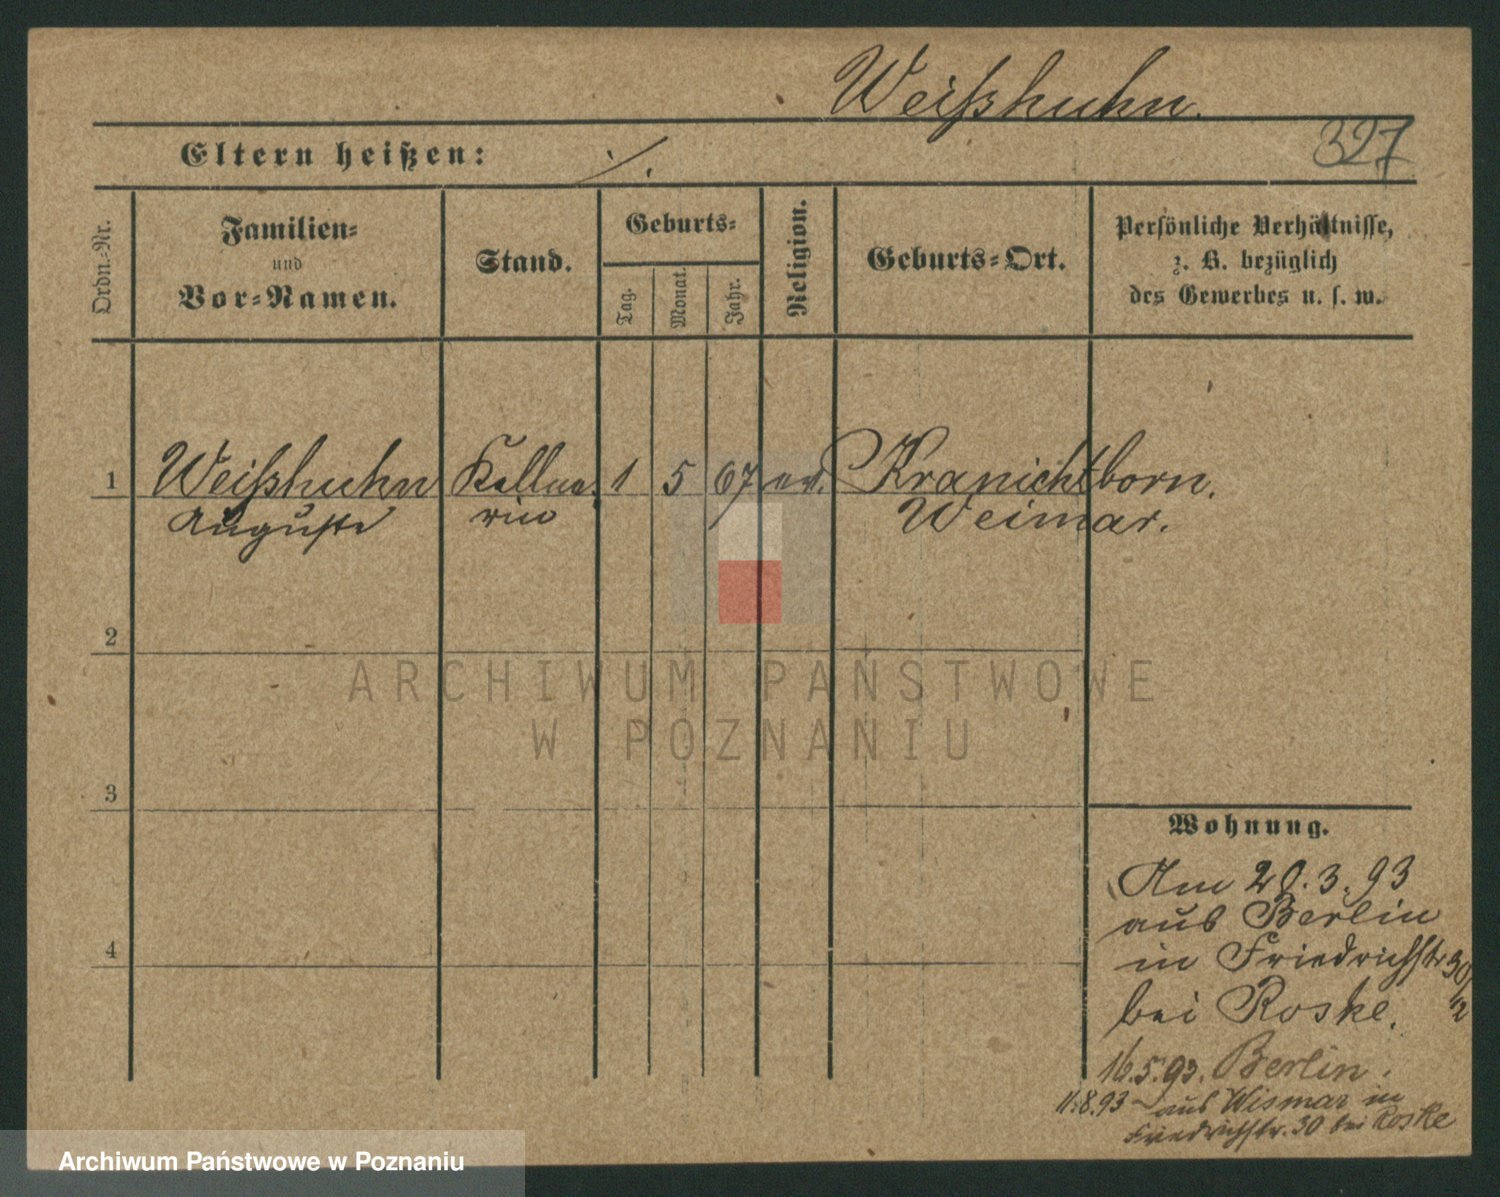 Weißhuhn.
327
Eltern heißen: ./.
Ordn.-Nr.
Familien-
und
Vor-Namen.
Stand.
Geburts-
Tag.
Monat.
Jahr.
Religion.
Geburts-Ort.
Persönliche Verhältnisse,
z. B. bezüglich
des Gewerbes u. s. w.
1 Weißhuhn Kellne- 1 5 67 ev. Kranichborn.
Auguste rin Weimar.
2
3
4
ARCHIWUM PAŃSTWOWE
W POZNANIU
Wohnung.
Am 20.3.93
aus Berlin
in Friedrichstr 30/12
bei Roske.
16.5.93. Berlin.
11.8.93 aus Wismar in
Friedrichstr. 30 bei Roske
Archiwum Państwowe w Poznaniu